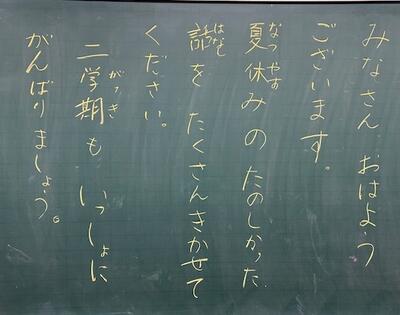 みなさん おはよう
ございます。
夏休みの たのしかった
話を たくさんきかせて
ください。
二学期も いっしょに
がんばりましょう。
なつやす
はなし
がっき